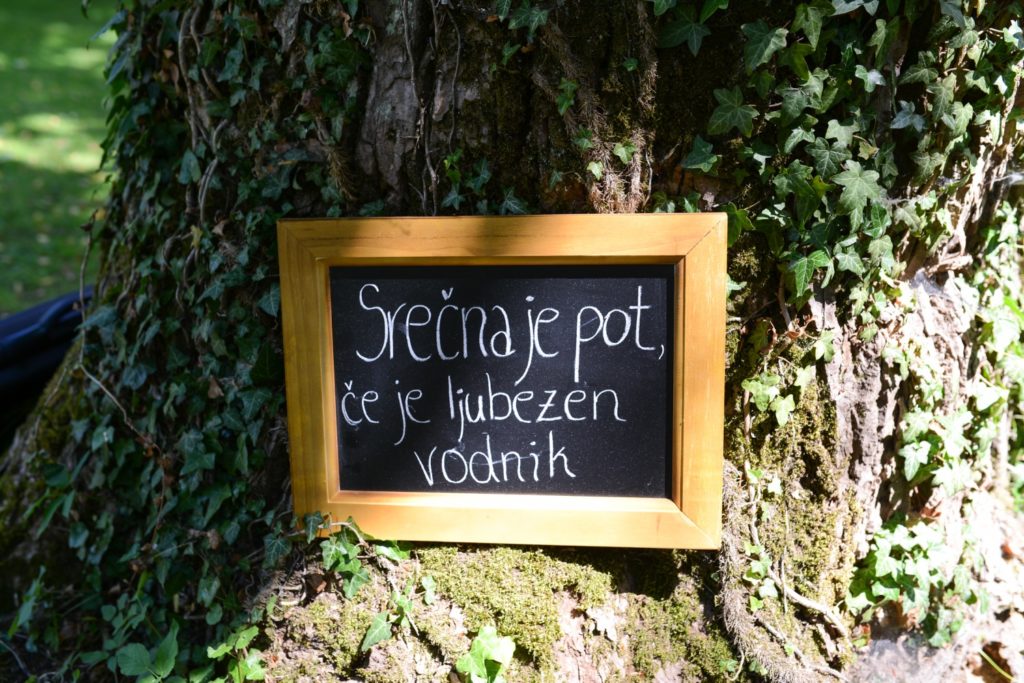 Srečna je pot,
če je ljubezen
vodnik